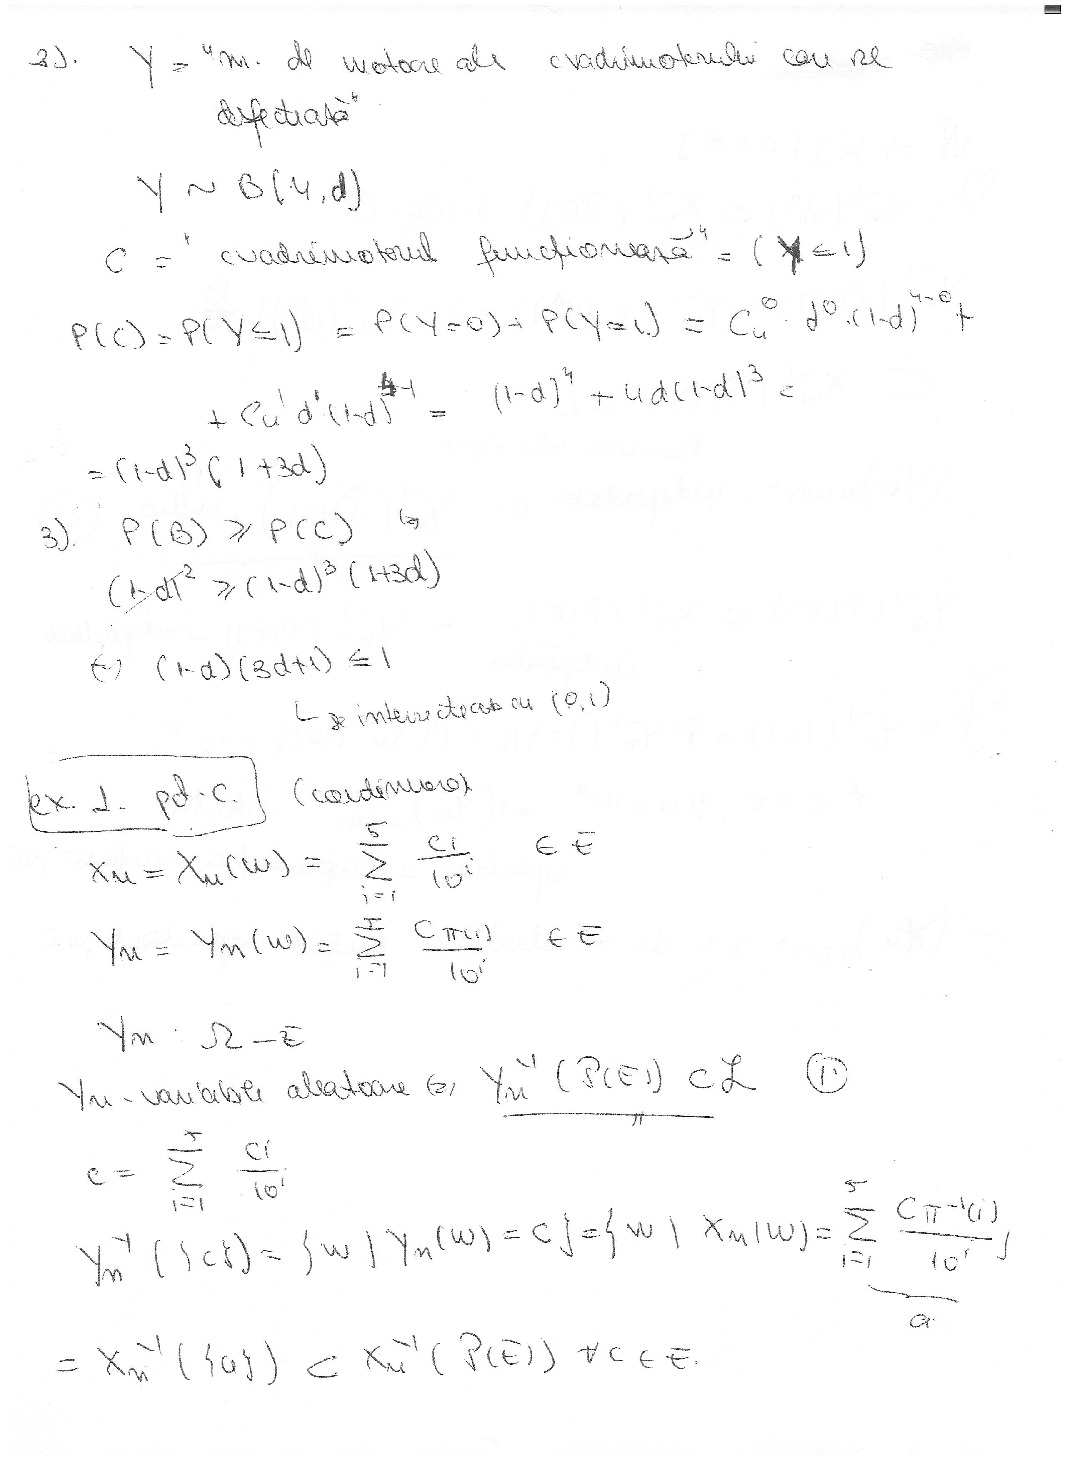 2). Y = "nr. de motoare ale cvadrimotorului care se
defectează"
Y ~ B(4,d)
C = "cvadrimotorul funcționează" = (Y ≤ 1)
P(C) = P(Y ≤ 1) = P(Y=0) + P(Y=1) = C₄⁰ · d⁰ · (1-d)⁴⁻⁰ +
+ C₄¹ d¹ (1-d)⁴⁻¹ = (1-d)⁴ + 4d(1-d)³ =
= (1-d)³ (1+3d)
3). P(B) ≥ P(C) ⇔
(1-d)² ≥ (1-d)³ (1+3d)
⇔ (1-d)(3d+1) ≤ 1
↳ se intersectează cu (0,1)
ex. 1. pct. c. (continuare)
Xn = Xn(ω) = Σ_{i=1}^{5} ci/10^i ∈ E
Yn = Yn(ω) = Σ_{i=1}^{5} cπ(i)/10^i ∈ E
Yn : Ω → E
Yn - variabile aleatoare ⇔ Yn⁻¹(P(E)) ⊂ ①
c = Σ_{i=1}^{5} ci/10^i
Yn⁻¹({c}) = {ω | Yn(ω) = c} = {ω | Xn(ω) = Σ_{i=1}^{5} cπ⁻¹(i)/10^i}
a
= Xn⁻¹({a}) ⊂ Xn⁻¹(P(E)) ∀ c ∈ E.